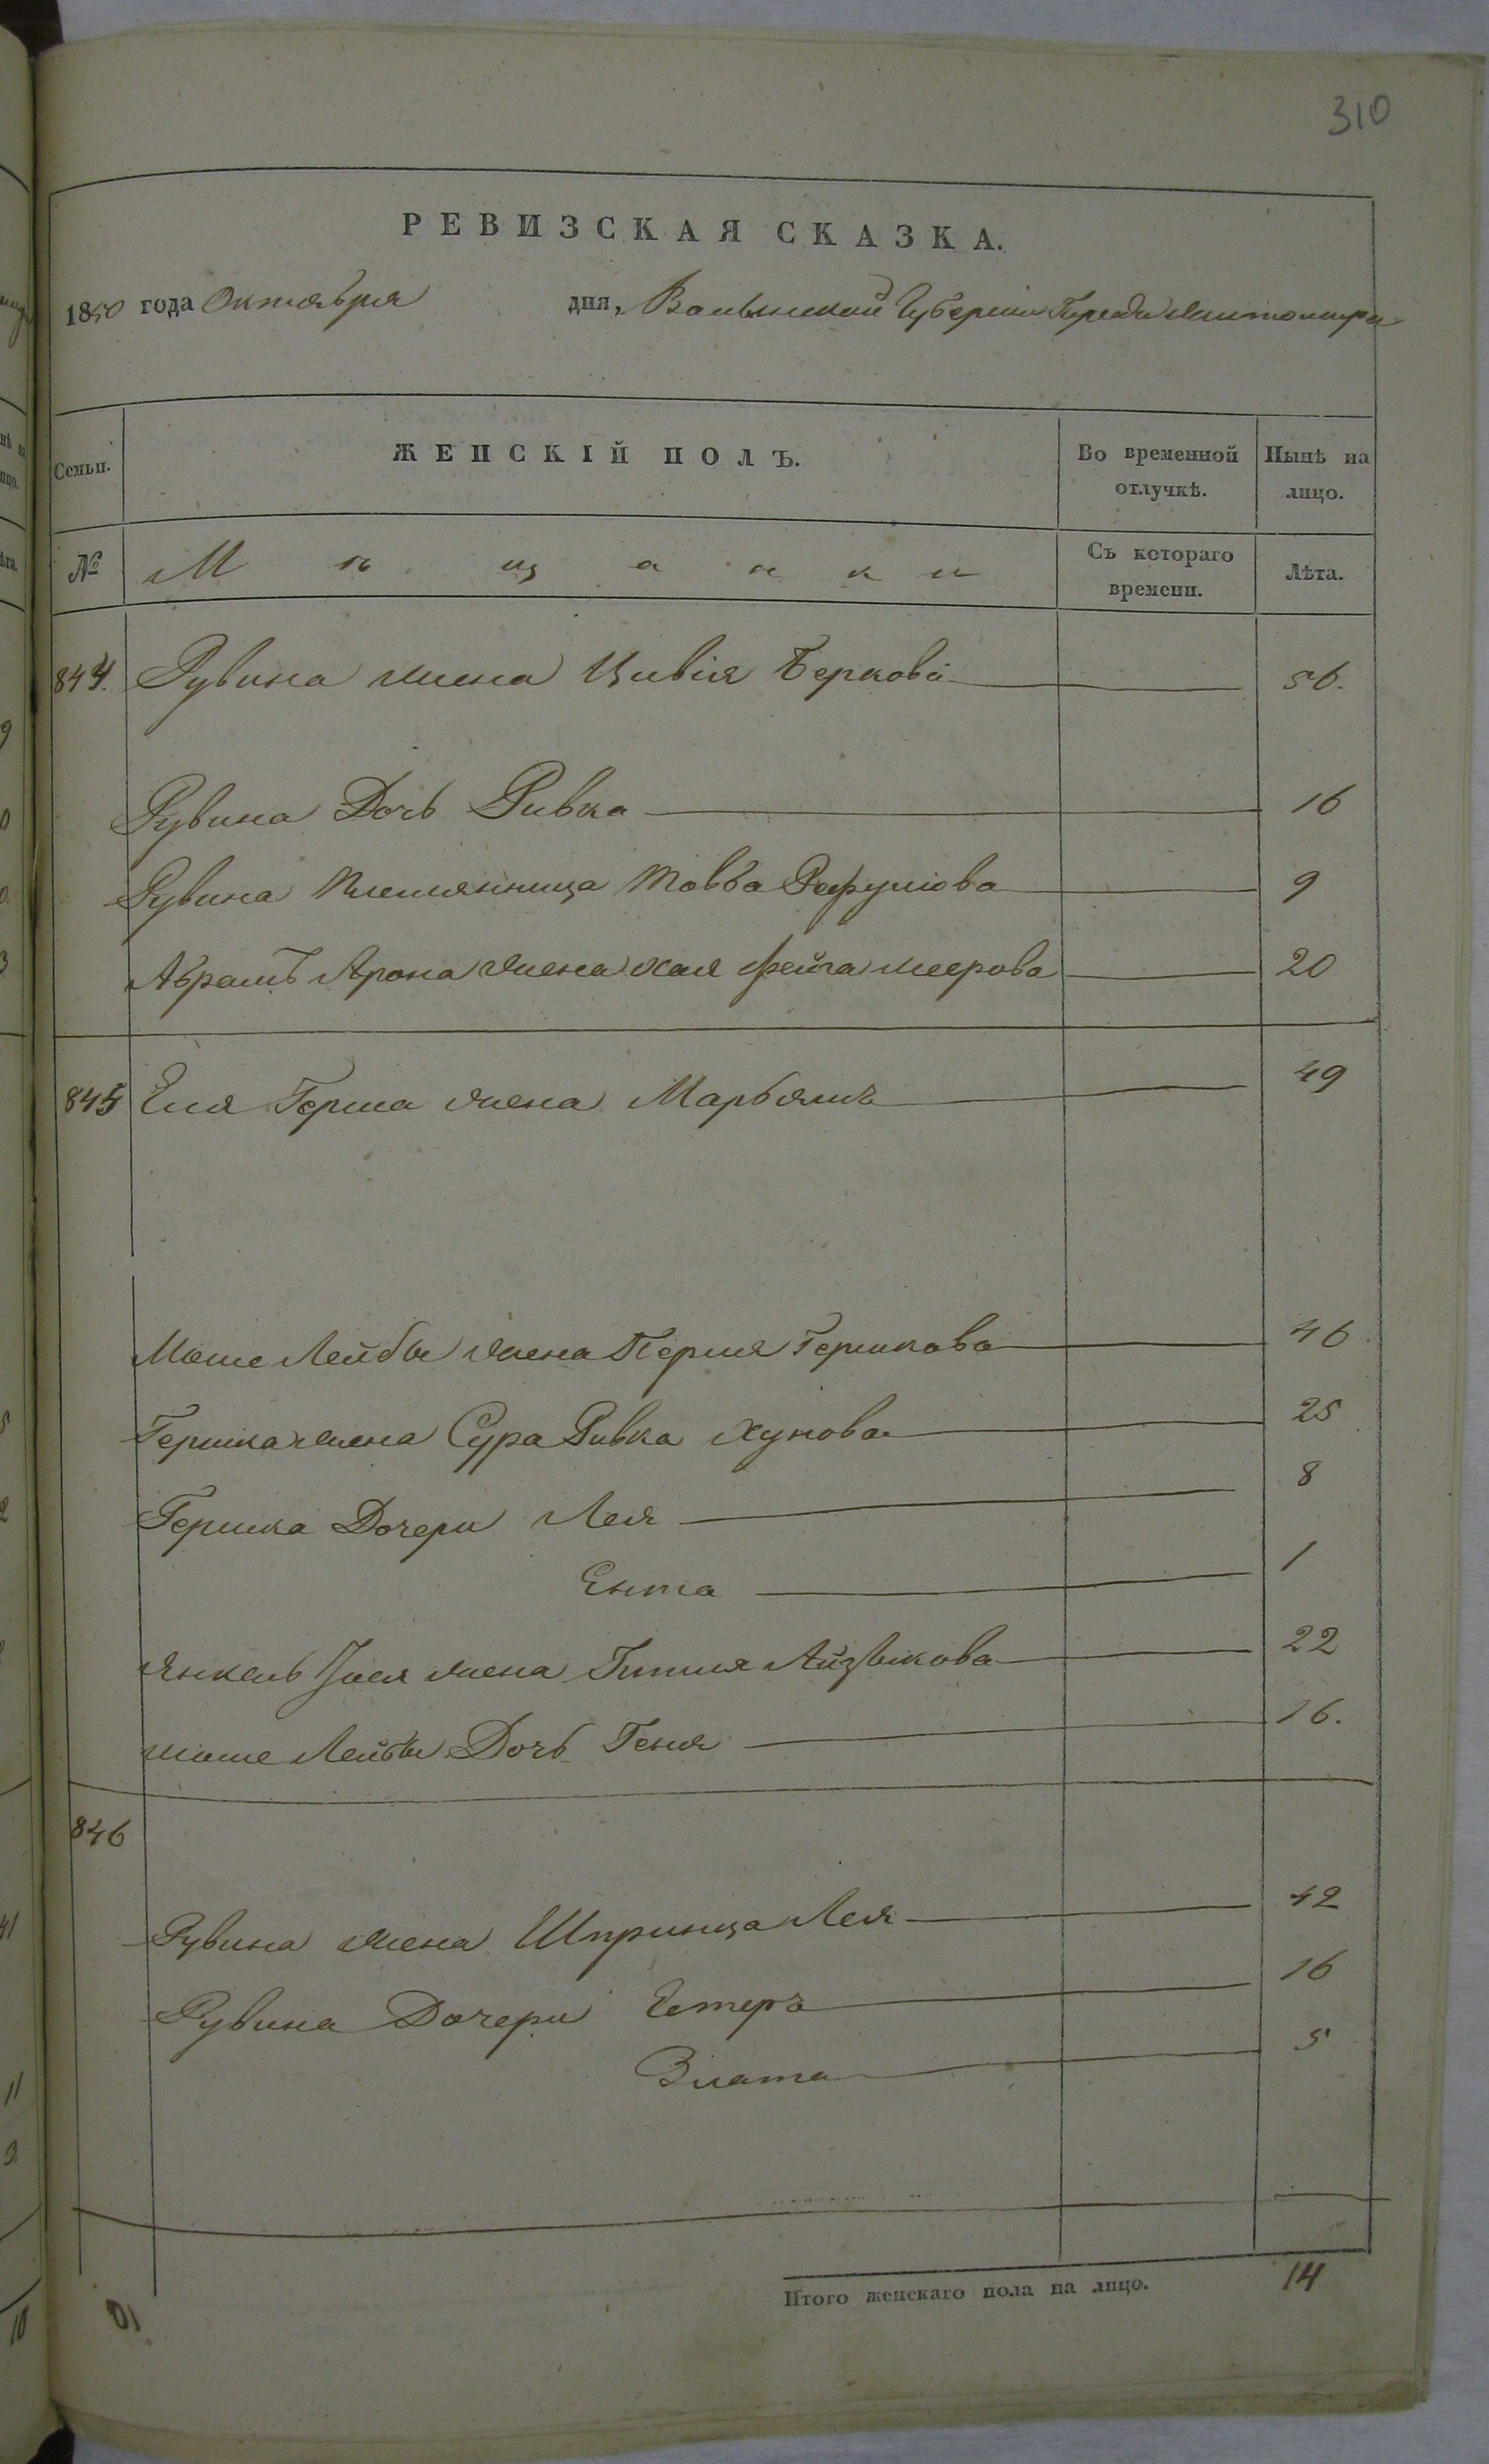 310
РЕВИЗСКАЯ СКАЗКА.
1850 года Октября дня, Волынской Губернии Города Житомира
Семьи. ЖЕНСКІЙ ПОЛЪ. Во временной отлучкѣ. Нынѣ на лицо.
№ Мѣщанки Съ котораго времени. Лѣта.
844. Рувина жена Цивія Беркова 56.
Рувина Дочь Ривка 16
Рувина Племянница Товба Рефулова 9
Абрамъ Арона жена Хая Фейга Меерова 20
845 Еля Герша жена Марьямъ 49
Моше Лейбы жена Перля Гершкова 46
Гершка жена Сура Ривка Хунова 25
Гершка Дочери Лея 8
Ента 1
Янкель Іося жена Гитля Айзыкова 22
Моше Лейбы Дочь Геня 16.
846
Рувина жена Шпринца Лея 42
Рувина Дочери Естеръ 16
Злата 5
Итого женскаго пола на лицо. 14